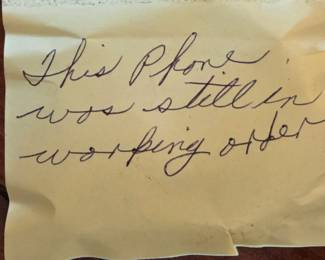 This Phone
was still in
working order